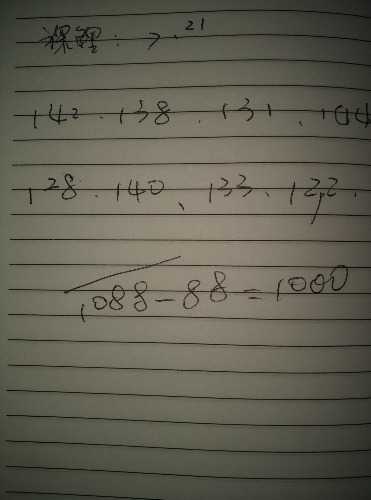 课程: 7.21
142.138.131.144
128.140、133.122.
1088-88=1000